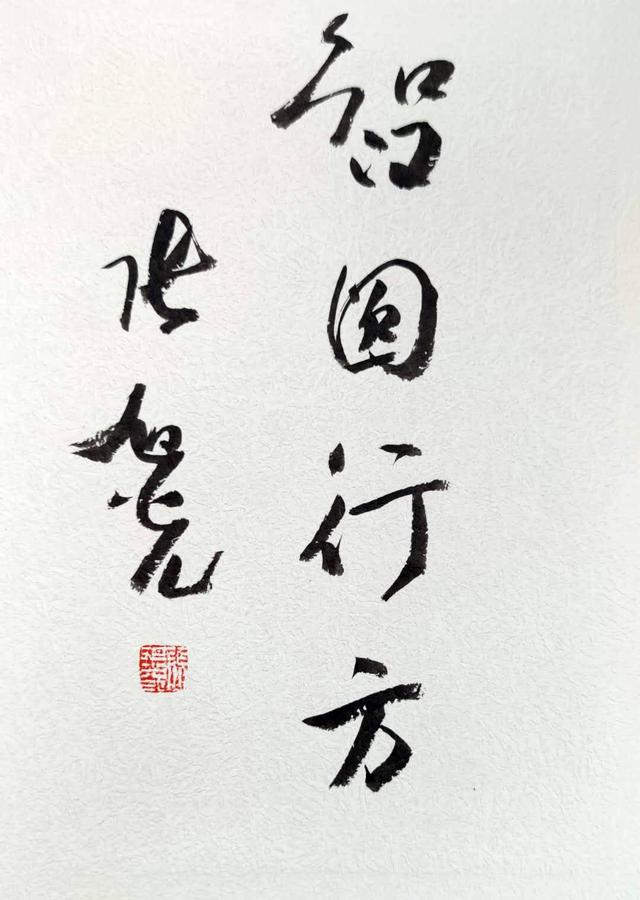 智圆行方
张旭亮